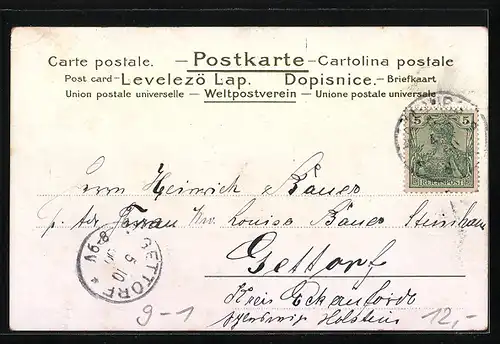 Carte postale. — Postkarte — Cartolina postale
Post card — Levelezö Lap. Dopisnice. — Briefkaart
Union postale universelle — Weltpostverein — Unione postale universale
5 5
REICHSPOST
Herrn Heinrich Bauer
p. Adr. Frau Ww. Louise Bauer
Gettorf
Kreis Eckernförde
Schleswig Holstein
GETTORF
5 10
8-9V
9-1
12,-